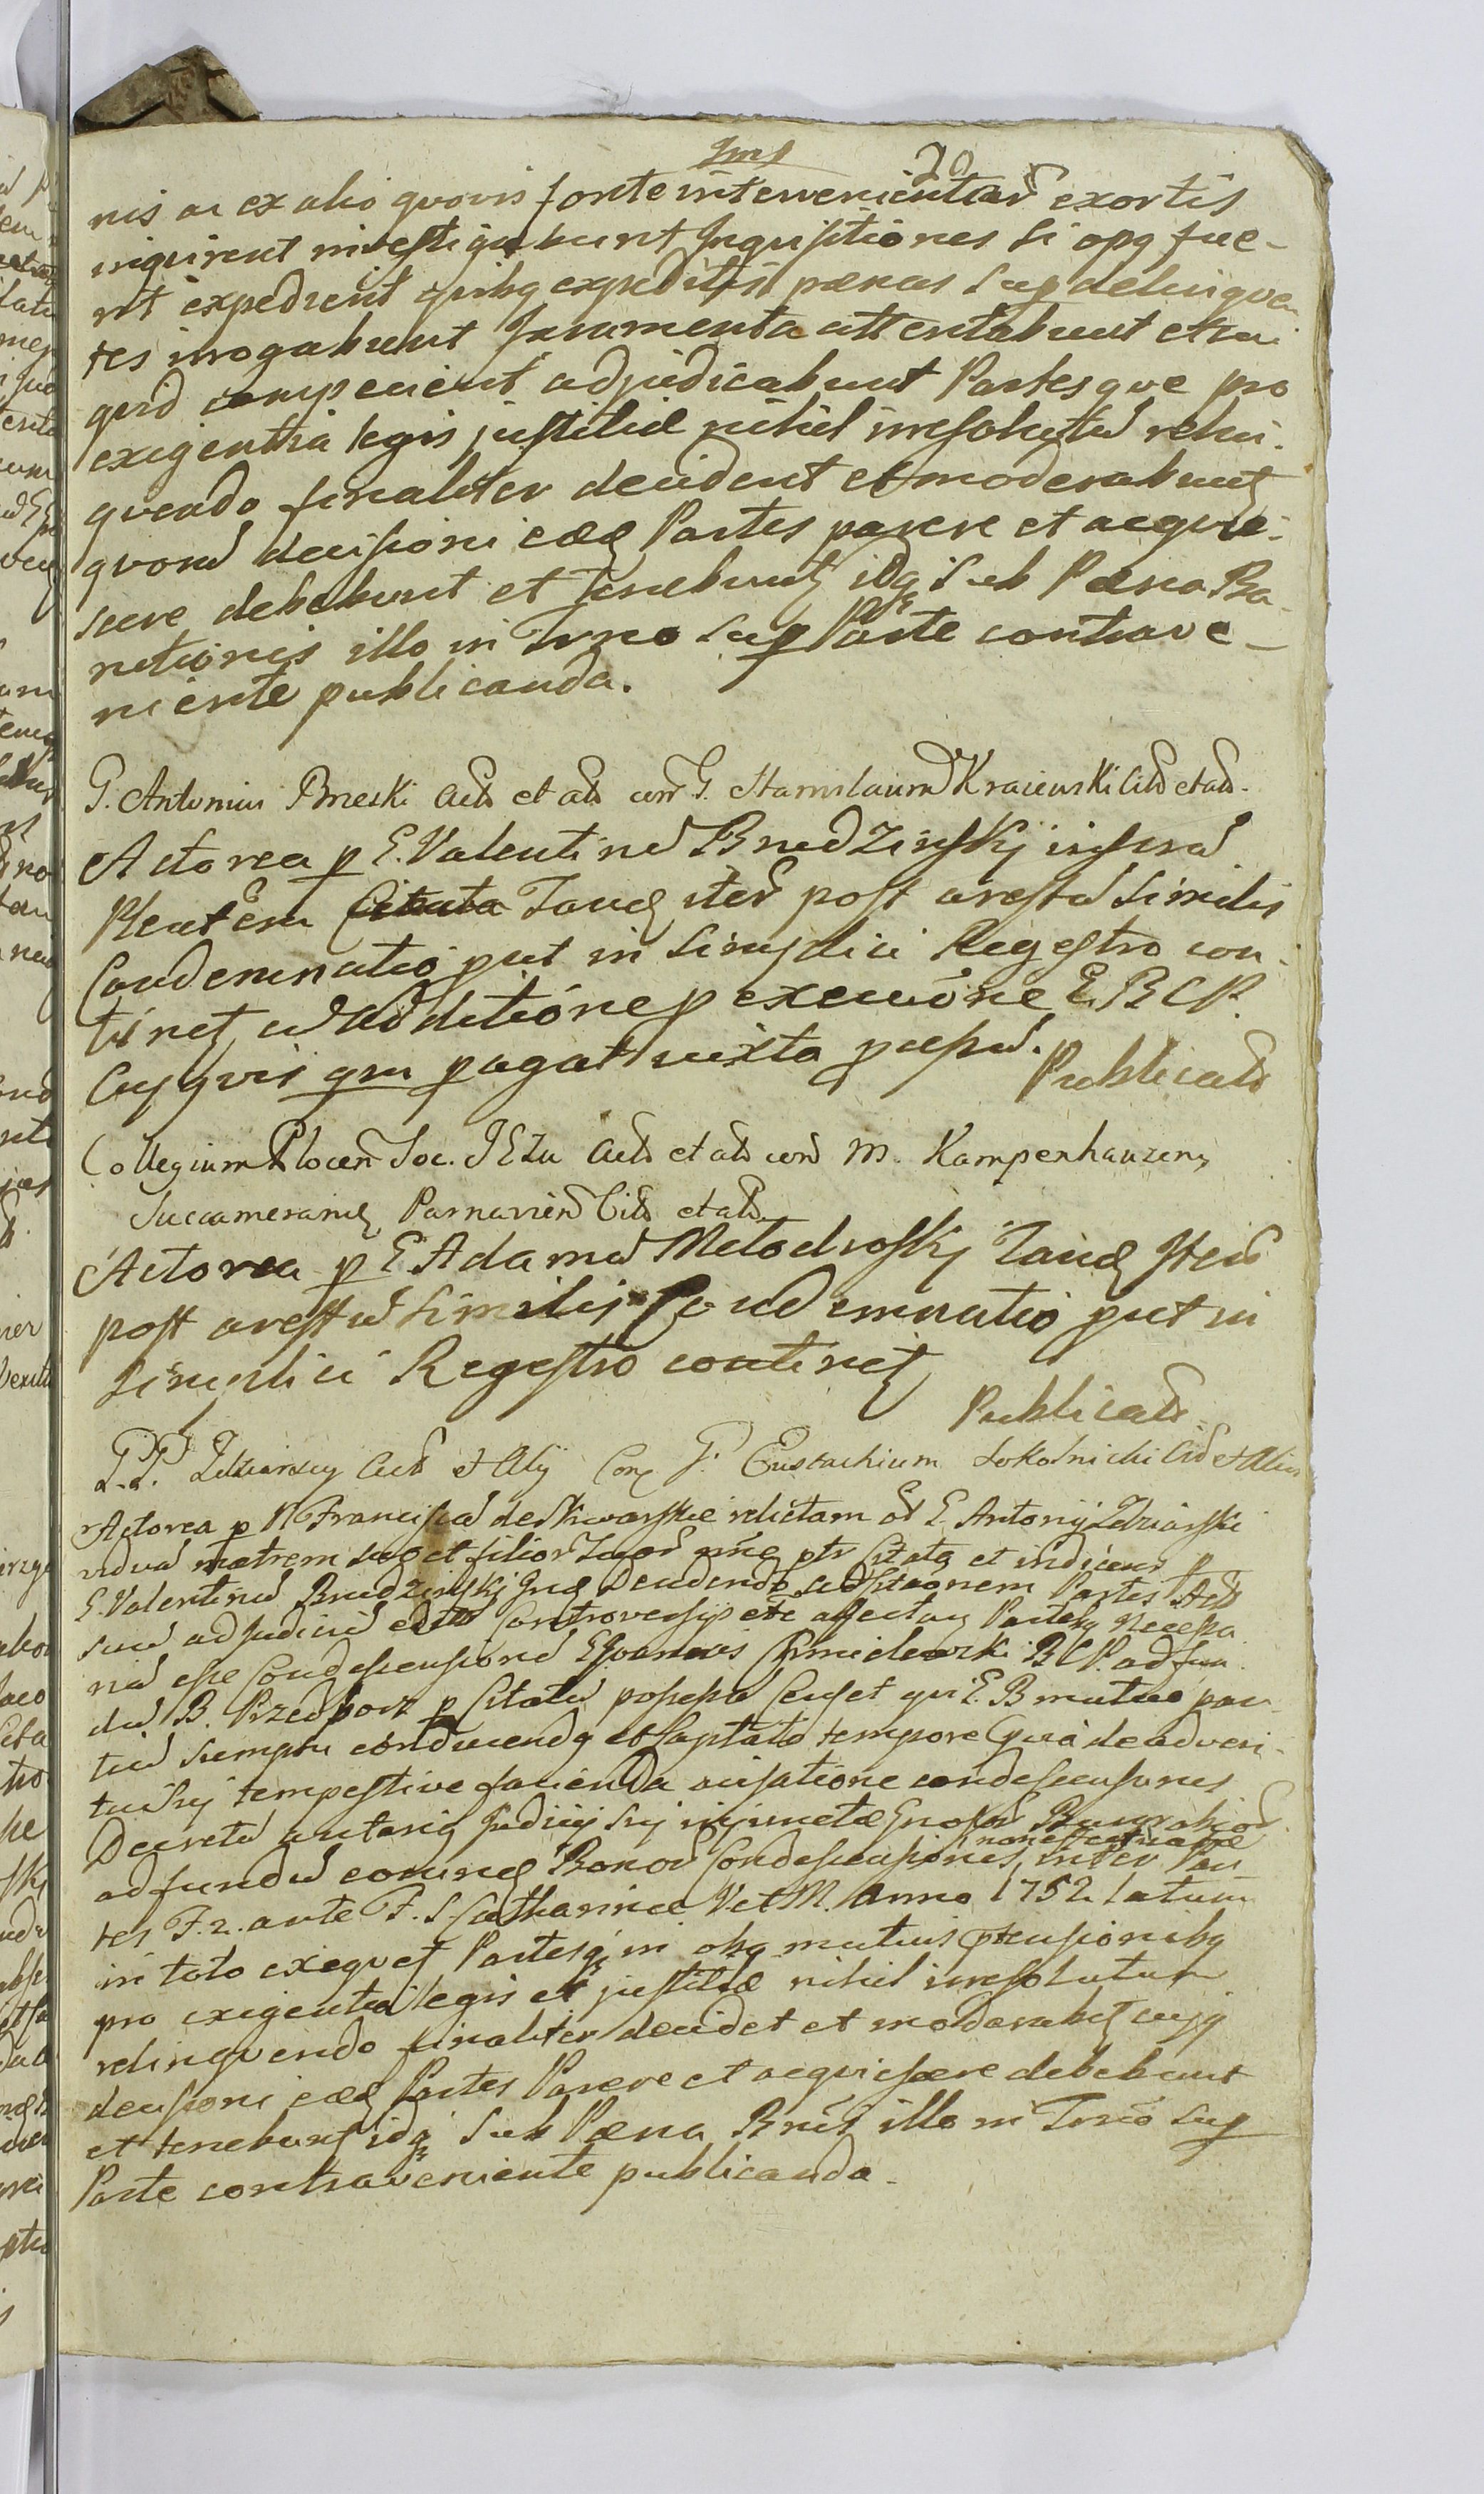 20
nis ac ex alio quovis fonte intervenientiar exortis
inquirent investigabunt Inquisitiones si opq fue-
rit expedient quibq expeditis pænas sup delinquen
tes irrogabunt Juramenta attentabunt et cui
quid competierit adjudicabunt Partesque pro
exigentia legis justitiæ nihil irresolutu relin-
quendo finaliter decident et moderabunt
quoru decisioni eæd Partes parere et acquie-
scere debebunt et tenebunt idq sub Pæna Ba-
nitionis illo in Trno sup Parte contrave-
niente publicanda.
G. Antonius Brzeski Act et alt con G. Stanislaum Kraiewski Cit et alt.
Actorea p E. Valentinu Brudzinskj infrad
Plentem Tand iter post arestu similis
Condemnatio put in simplici Regestro con-
tinet cu additione p execuõne E. B C P.
Cujqvis qm p agat iuxta præpu.
Publicat
Collegium Plocen Soc. JESu Act et alt con M. Kampenhauzen
Succamerariu Parnavien Cit et alt
Actorea p E. Adamu Metodroskj Tand Iteru
post arestu similis Condemnatio put in
simplici Regestro continet
Publicat
P.P. Zdziarscy Act et Alij Con G. Eustachium Sokolnicki Cit et Alios
Actorea p N Franciscu de Skwarskie relictam od E. Antonij Zdziarski
vidua matrem suo et filior suor nne ptr Citatq et indicens p
E. Valentinu Brudzinskj Jud Decidendo ad Citaõnem Partes Act
suu ad judiciu Controversijs etc assectaq Partesq Necessa
riu esse Condescensione Chmielewski B C P. ad fun
du B. Przedborz p Citatu possessa Censet qui E. B mutuo par-
tiu sumptu conducendq et Captato tempore Quia de adveni-
tu suj tempestive facienda avisatione condescensionis
Decretu antariq Judicij suj
ad fundu eorund Bonor Condescensionis, non effectuatæ inter Par
tes F. 2. ante F. S. Catharinæ V et M. Anno 1752 latum
in toto exequet Partesq in obq mutuis ptensionibq
pro exigentia legis et justitiæ nihil irresolutum
relinquendo finaliter decidet et moderabit cujq
decisioni eæd Partes Parere et acquiescere debebunt
et tenebunt idq sub Pæna Bnis illo in Trno sup
Parte contraveniente publicanda.